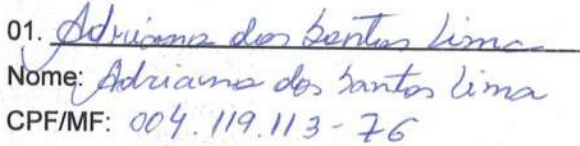 01. Adriana dos Santos Lima
Nome: Adriana dos Santos Lima
CPF/MF: 004.119.113-76